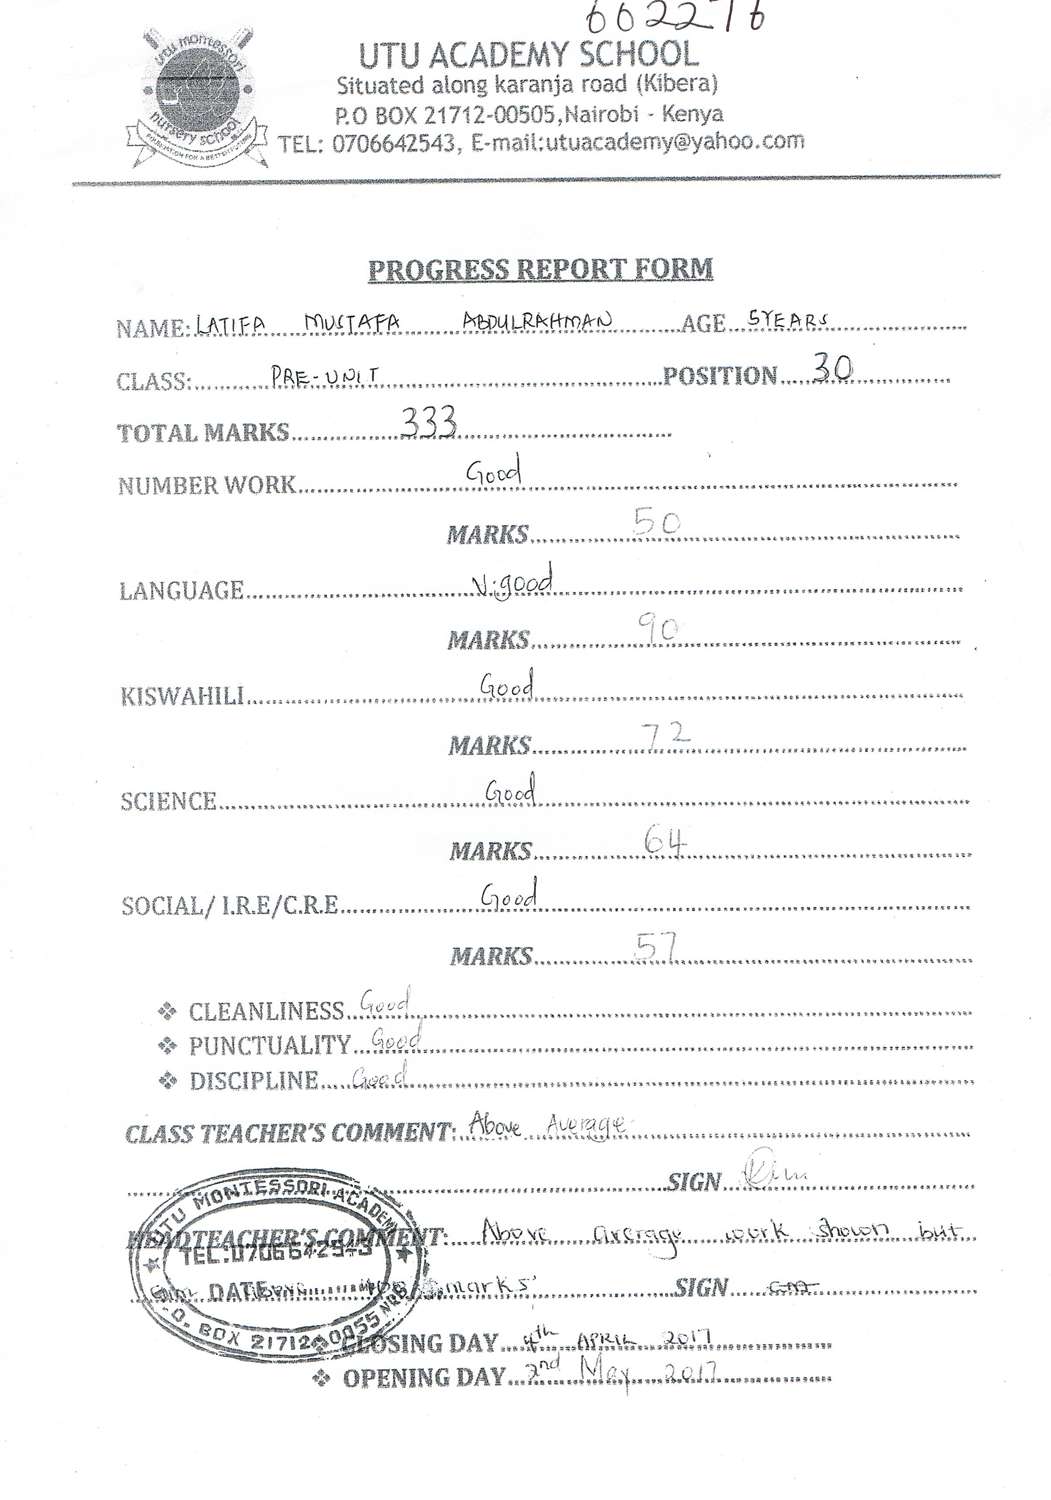 662276
utu montessori
nursery school
FOUNDATION FOR A BETTER FUTURE
UTU ACADEMY SCHOOL
Situated along karanja road (Kibera)
P.O BOX 21712-00505,Nairobi - Kenya
TEL: 0706642543, E-mail:utuacademy@yahoo.com
PROGRESS REPORT FORM
NAME: LATIFA MUSTAFA ABDULRAHMAN AGE 5YEARS
CLASS: PRE-UNIT POSITION 30
TOTAL MARKS 333
NUMBER WORK Good
MARKS 50
LANGUAGE V.good
MARKS 90
KISWAHILI Good
MARKS 72
SCIENCE Good
MARKS 64
SOCIAL/ I.R.E/C.R.E Good
MARKS 57
❖ CLEANLINESS Good
❖ PUNCTUALITY Good
❖ DISCIPLINE Good
CLASS TEACHER'S COMMENT: Above Average
SIGN
UTU MONTESSORI ACADEMY
HEADTEACHER'S COMMENT: Above average work shown but
TEL:0706642543
DATE marks SIGN
P.O. BOX 21712-00
NRB
❖ CLOSING DAY 4th APRIL 2017
❖ OPENING DAY 2nd May 2017